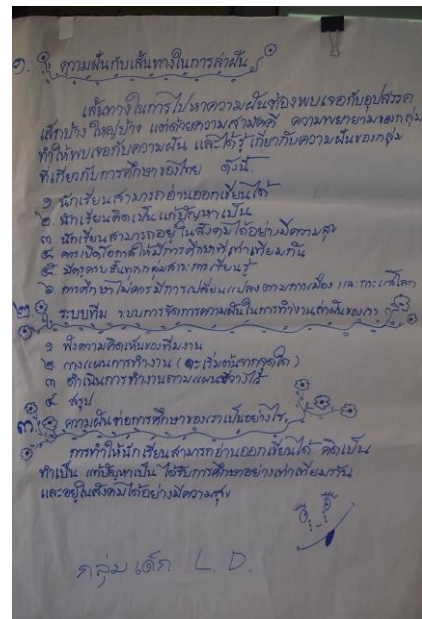 ๑. ความฝันกับเส้นทางในการล่าฝัน
เส้นทางในการไปหาความฝันต้องพบเจอกับอุปสรรค
เล็กบ้าง ใหญ่บ้าง แต่ด้วยความสามัคคี ความพยายามของกลุ่ม
ทำให้พบเจอกับความฝัน และได้รู้เกี่ยวกับความฝันของกลุ่ม
ที่เกี่ยวกับการศึกษาของไทย ดังนี้.
๑ นักเรียนสามารถอ่านออกเขียนได้
๒. นักเรียนคิดเป็นแก้ปัญหาเป็น
๓ นักเรียนสามารถอยู่ในสังคมได้อย่างมีความสุข
๔ ควรเปิดโอกาสให้มีการศึกษาที่เท่าเทียมกัน
๕ มีครูครบชั้นทุกกลุ่มสาระการเรียนรู้
๖ การศึกษาไม่ควรมีการเปลี่ยนแปลงตามการเมือง และกระแสโลก
๒. ระบบทีม ระบบการจัดการความฝันในการทำงานล่าฝันของเรา
๑ ฟังความคิดเห็นของทีมงาน
๒ วางแผนการทำงาน (จะเริ่มต้นจากจุดใด)
๓ ดำเนินการทำงานตามแผนที่วางไว้
๔ สรุป
๓ ความฝันต่อการศึกษาของเราเป็นอย่างไร
การทำให้นักเรียนสามารถอ่านออกเขียนได้ คิดเป็น
ทำเป็น แก้ปัญหาเป็น ได้รับการศึกษาอย่างเท่าเทียมกัน
และอยู่ในสังคมได้อย่างมีความสุข
กลุ่ม เด็ก L. D.